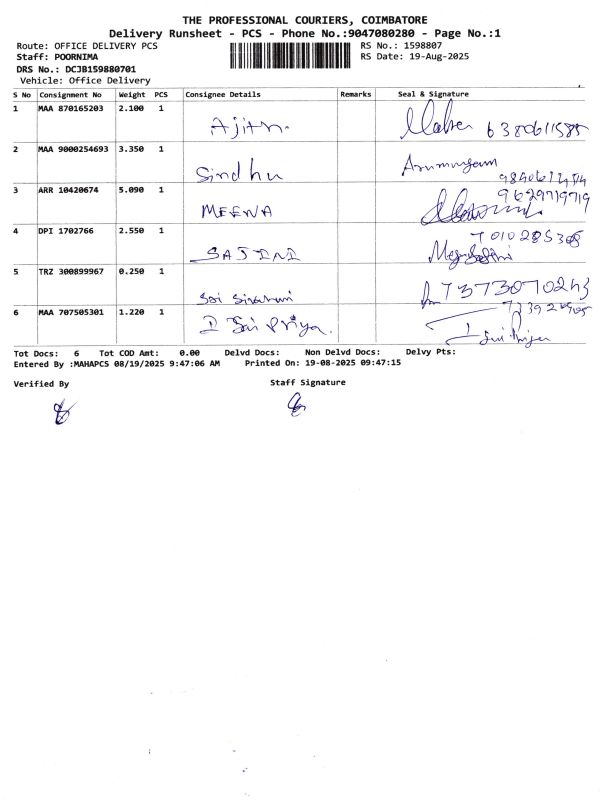 THE PROFESSIONAL COURIERS, COIMBATORE
Delivery Runsheet - PCS - Phone No.:9047080280 - Page No.:1
Route: OFFICE DELIVERY PCS RS No.: 1598807
Staff: POORNIMA RS Date: 19-Aug-2025
DRS No.: DCJB159880701
Vehicle: Office Delivery
S No Consignment No Weight PCS Consignee Details Remarks Seal & Signature
1 MAA 870165203 2.100 1
Ajith. 6380611585
2 MAA 9000254693 3.350 1
Sindhu Arumugam
3 ARR 10420674 5.090 1 9629719719
MEENA
4 DPI 1702766 2.550 1 7010285308
SAJINI
5 TRZ 300899967 0.250 1 7373070243
Sai
6 MAA 707505301 1.220 1
I Sai Priya.
Tot Docs: 6 Tot COD Amt: 0.00 Delvd Docs: Non Delvd Docs: Delvy Pts:
Entered By :MAHAPCS 08/19/2025 9:47:06 AM Printed On: 19-08-2025 09:47:15
Verified By Staff Signature